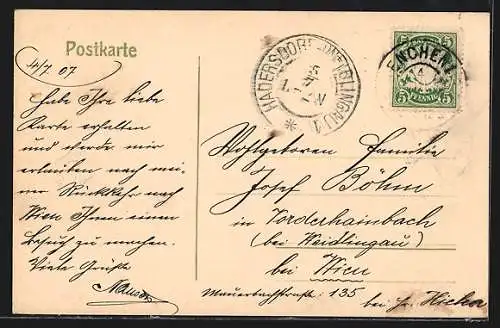 Postkarte
4/7. 07
Habe Ihre liebe
Karte erhalten
und werde mir
erlauben nach mei-
ner Rückkehr nach
Wien Ihnen einen
Besuch zu machen.
Viele Grüße
HADERSDORF-WEIDLINGAU 1
5 5
PFENNIG
Wohlgeboren Familie
Josef Böhm
in Vorderhainbach
(bei Weidlingau)
bei Wien
Mauerbachstraße 135
bei Hr.